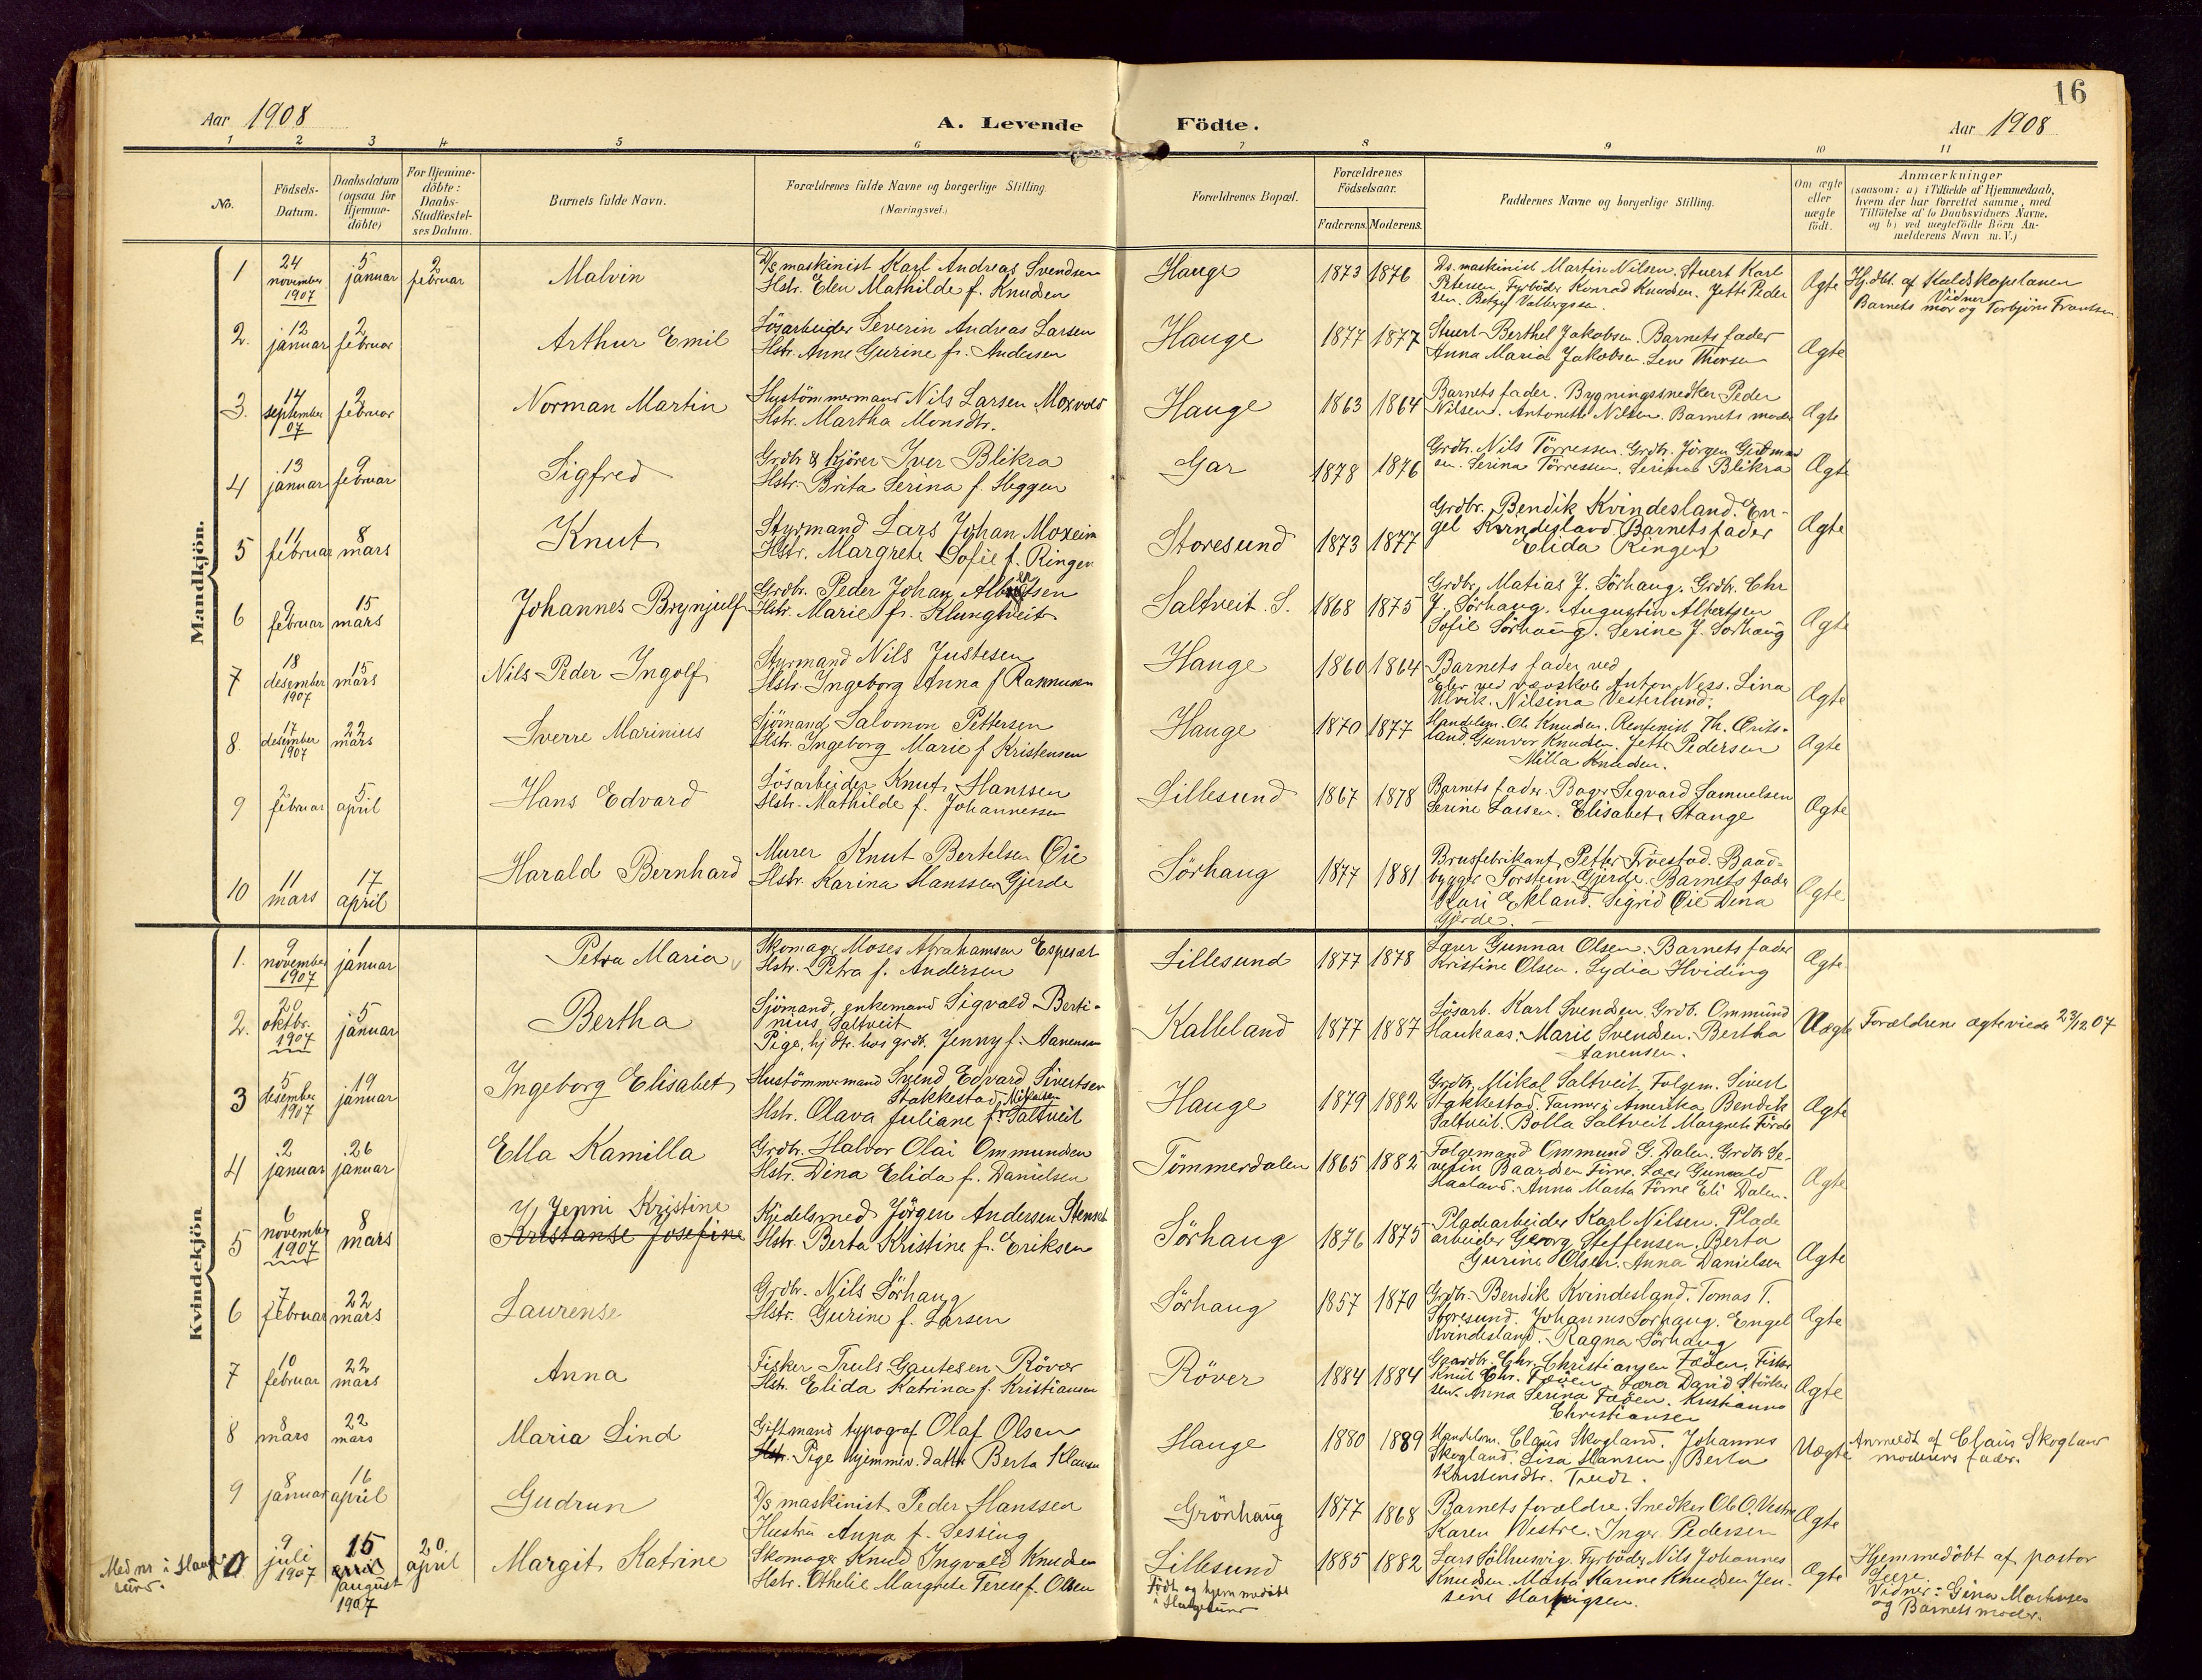 16
Aar 1908
A. Levende Födte.
Aar 1908
1 2 3 4 5 6 7 8 9 10 11
No.
Födsels-Datum.
Daabsdatum (ogsaa for Hjemme-döbte)
For Hjemme-döbte: Daabs-Stadfæstel-ses Datum.
Barnets fulde Navn.
Forældrenes fulde Navne og borgerlige Stilling. (Næringsvei.)
Forældrenes Bopæl.
Forældrenes Födselsaar.
Faderens. Moderens.
Faddernes Navne og borgerlige Stilling.
Om ægte eller uægte födt.
Anmærkninger
(saasom: a) i Tilfælde af Hjemmedaab,
hvem der har forrettet samme, med
Tilföielse af to Daabsvidners Navne,
og b) ved uægtefödte Börn An-
melderens Navn m. V.)
Mandkjön.
1 24 november 1907 5 januar 2 februar Malvin
D/S maskinist Karl Andreas Svendsen
Hstr. Elen Mathilde f. Knudsen
Hauge 1873 1876
Ds. maskinist Martin Nilsen. Stuert Karl
Petersen, Fyrböder Konrad Knudsen. Jette Peder
sen. Betzy Valbergsen.
Ægte
Hj.dbt. af Kaldskapelanen
Vidner
Barnets mor og Torbjörn Frantsen.
2. 12 januar 2 februar Arthur Emil
Lösarbeider Severin Andreas Larsen
Hstr. Anne Gurine f. Andersen
Hauge 1877 1877
Stuert Berthel Jakobsen. Barnets fader
Anna Maria Jakobsen. Lene Thorsen
Ægte
3. 14 september 07 2 februar Norman Martin
Hustömmermand Nils Larsen Moxvold
Hstr. Martha Monsdtr.
Hauge 1863 1864
Barnets fader. Bygningssnedker Peder
Nilsen. Antonette Nilsen. Barnets moder
Ægte
4 13 januar 9 februar Sigfred
Grdbr & kjörer Iver Blikra
Hstr. Brita Serina f. Heggen
Gar 1878 1876
Grdbr. Nils Törressen. Grdbr. Jörgen Gudman
sen. Serina Törressen. Serina Blikra
Ægte
5 11 februar 8 mars Knut
Styrmand Lars Johan Moxeim
Hstr. Margrete Sofie f. Ringen
Storesund 1873 1877
Grdbr. Bendik Kvindesland. En-
gel Kvindesland Barnets fader
Elida Ringen
Ægte
6 9 februar 15 mars Johannes Brynjulf
Grdbr. Peder Johan Albertsen
Hstr. Marie f. Klungtveit
Saltveit. S. 1868 1875
Grdbr. Matias J. Sörhaug. Grdbr. Chr
J. Sörhaug. Augustin Albertsen
Sofie Sörhaug. Serine J. Sörhaug
Ægte
7 18 desember 1907 15 mars Nils Peder Ingolf
Styrmand Nils Justesen
Hstr. Ingeborg Anna f Rasmussen
Hauge 1860 1864
Barnets fader ved
Eier ved vævskole Anton Næss. Lina
Ulvik. Nilsina Vesterlund.
Ægte
8. 17 desember 1907 22 mars Sverre Marinius
Sjömand Salomon Pettersen
Hstr. Ingeborg Marie f Kristensen
Hauge 1870 1877
Handelsm. Ole Knudsen. Rentenist Th. Ørits-
land. Gunvor Knudsen. Jette Pedersen
Milla Knudsen.
Ægte
9 2 februar 5 april Hans Edvard
Lösarbeider Knut Hanssen
Hstr. Mathilde f. Johannessen
Lillesund 1867 1878
Barnets fader. Bager Sigvard Samuelsen
Serine Larsen. Elisabet Stange
Ægte
10 11 mars 17 april Harald Bernhard
Murer Knut Bertelsen Øie
Hstr. Karina Hanssen Gjerde
Sörhaug 1877 1881
Brusfabrikant Petter Tröestad. Baad-
bygger Torstein Gjerde. Barnets fader
Kari Ekland. Sigrid Øie Dina
Gjerde.
Ægte
Kvindekjön
1. 9 november 1907 1 januar Petra Maria
Skomager Moses Abrahamsen Espesæt
Hstr. Petra f. Andersen
Lillesund 1877 1878
Lærer Gunnar Olsen. Barnets fader
Kristine Olsen. Lydia Hviding
Ægte
2. 20 oktbr. 1907 5 januar Bertha
Sjömand, enkemand Sigvald Berti-
nius Saltveit
Pige, hj dtr. hos grdb. Jenny f. Aanensen
Kalleland 1877 1887
Lösarb. Karl Svendsen. Grdb. Ommund
Haukaas. Marie Svendsen. Bertha
Aanensen.
Uægte Forældrene ægteviede 23/12 07
3 5 desember 1907 19 januar Ingeborg Elisabet
Hustömmermand Svend Edvard Sivertsen
Stakkestad
Hstr. Olava Juliane f. Saltveit
Hauge 1879 1882
Grdbr. Mikal Saltveit. Folgem. Sivert
Stakkestad. Farmer i Amerika Bendik
Saltveit. Bolla Saltveit Margrete Förde
Ægte
4 2 januar 26 januar Ella Kamilla
Grdbr. Halvor Olai Ommundsen
Hstr. Dina Elida f. Danielsen
Tömmerdalen 1865 1882
Folgemand Ommund G. Dalen. Grdbr Se-
verin Baardsen Time. Lærer Gunvald
Haaland. Anna Marta Time Eli Dalen.
Ægte
5 6 november 1907 8 mars Jenni Kristine
Kristanse Josefine
Kjedelsmed Jörgen Andersen Stensæt
Hstr. Berta Kristine f. Eriksen
Sörhaug 1876 1875
Pladearbeider Karl Nilsen. Plade
arbeider Georg Steffensen. Berta
Gurine Olsen. Anna Danielsen
Ægte
6 7 februar 22 mars Laurense
Grdbr. Nils Sörhaug
Hstr. Gurine f. Larsen
Sörhaug 1857 1870
Grdbr. Bendik Kvindesland. Tomas T.
Storesund. Johannes Sörhaug. Engel
Kvindesland. Ragna Sörhaug
Ægte
7 10 februar 22 mars Anna
Fisker Truls Gautesen Röver
Hstr. Elida Katrina f. Kristiansen
Röver 1884 1884
Gaardbr. Chr. Christiansen Fæöen. Fisker
Knut Chr. Fæöen. Lærer David Störker
sen. Anna Serina Fæöen. Kristianna
Christiansen
Ægte
8 8 mars 22 mars Maria Lind
Gift mand typograf Olaf Olsen
Hstr. Pige hjemmev. datter Berta Klausen
Hauge 1880 1889
Handelsm. Claus Skogland. Johannes
Skogland. Lisa Hansen. Berta
Kristensdtr. Tveit.
Uægte
Anmeldt af Claus Skogland
moderens fader.
9 8 januar 16 april Gudrun
D/S maskinist Peder Hanssen
Hustru Anna f. Sessing
Grönhaug 1877 1868
Barnets forældre. Snedker Ole O. Vestre
Karen Westre. Inger Pedersen
Ægte
Med nr. i Hauge-
sund.
0 9 juli 1907 15 april august 1907 20. april Margit Katrine
Skomager Knud Ingvald Knudsen
Hstr. Othelie Margrete Terese f. Olsen
Lillesund
Födt og hjemmedöbt
i Haugesund
1885 1882
Lars Sölhusvig. Fyrböder Nils Johannes
Knudsen. Marta Karine Knudsen Jen-
sine
Ægte
Hjemmedöbt af pastor
Vidner: Gina
og Barnets moder.